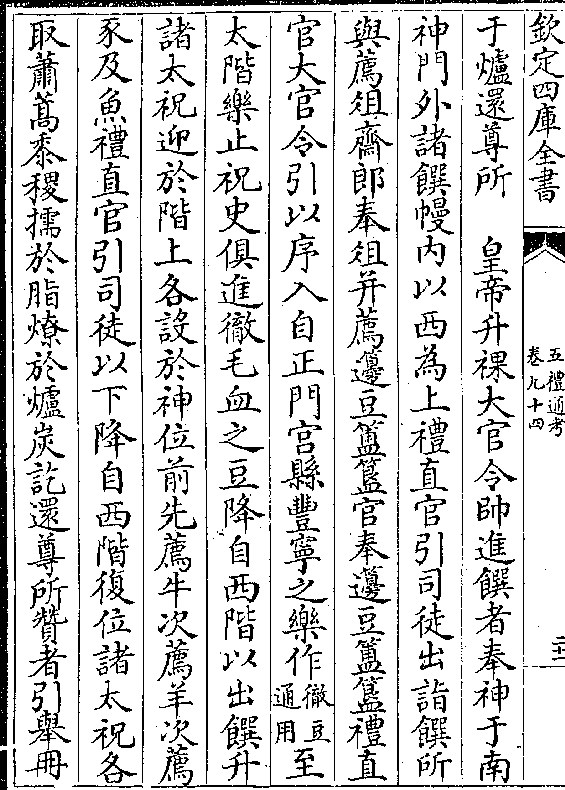 欽定四庫全書
五禮通考
卷九十四
二十二
于爐還尊所　皇帝升祼大官令帥進饌者奉神于南
神門外諸饌幔内以西為上禮直官引司徒出詣饌所
與薦俎齋郎奉俎并薦籩豆簠簋官奉籩豆簠簋禮直
官大官令引以序入自正門宫縣豐寧之樂作徹豆通用至
太階樂止祝史俱進徹毛血之豆降自西階以出饌升
諸太祝迎於階上各設於神位前先薦牛次薦羊次薦
豕及魚禮直官引司徒以下降自西階復位諸太祝各
取蕭蒿黍稷擩於脂燎於爐炭訖還尊所贊者引舉冊